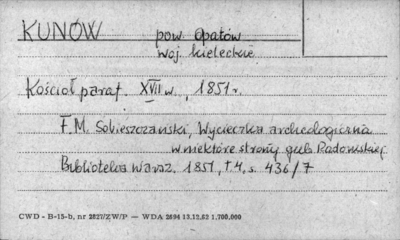 KUNÓW pow. Opatów
woj. kieleckie
Kościół paraf. XVII w., 1851 r.
F. M. Sobieszczański, Wycieczka archeologiczna
w niektóre strony gub. Radomskiej.
Biblioteka Warsz. 1851, t. 4, s. 436/7
CWD - B-15-b, nr 2827/ZW/P — WDA 2694 13.12.62 1.700.000